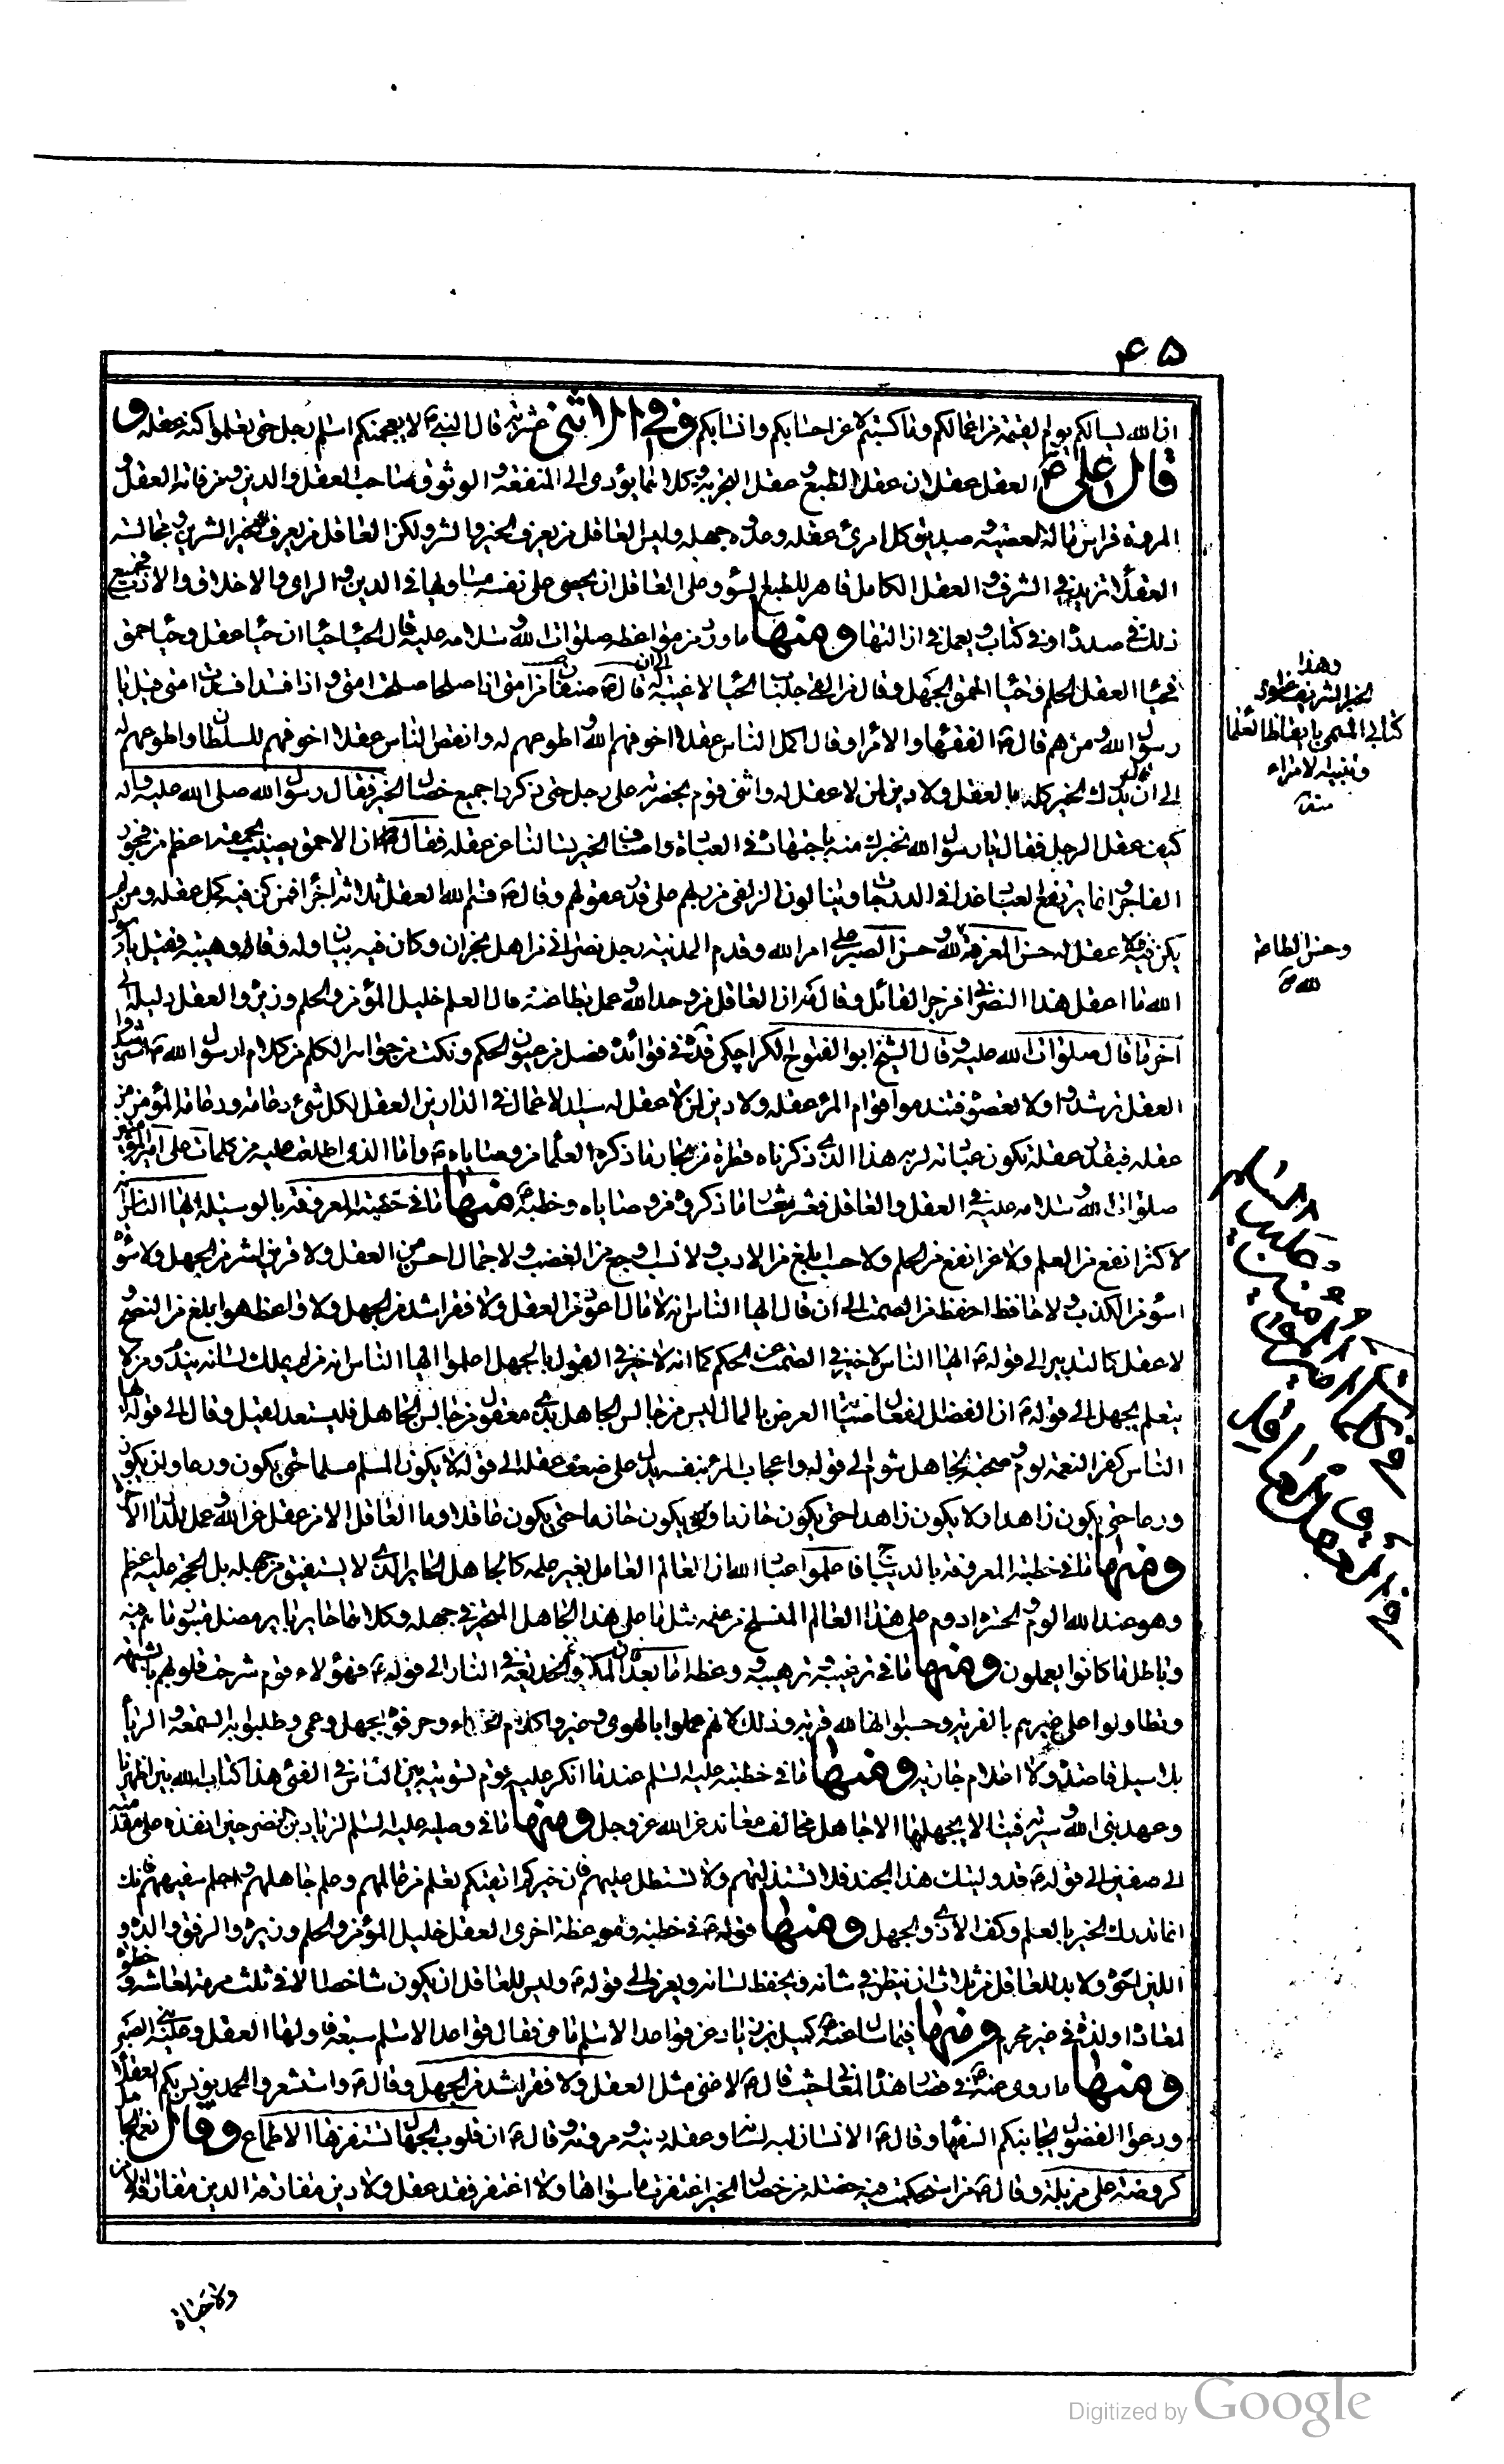 ۴۵
ان الله يسالكم يوم القيمة عن اعمالكم وما كسبتم لا عن احسابكم وانسابكم وفي الاثنى عشرية قال النبي ص لا يعجبنكم اسلام رجل حتى تعلموا كنه عقله و
قال علي ع العقل عقلان عقل الطبع و عقل التجربة وكلاهما يؤدى الى المنفعة والوثوق صاحب العقل والدين ومن فاته العقل و
المروة فراس ماله المعصية وصديق كل امرئ عقله وعدوه جهله وليس العاقل من يعرف الخير والشر ولكن العاقل من يعرف خير الشرين ومجالسة
العقلاء تزيد في الشرف والعقل الكامل قاهر للطبع السوء وعلى العاقل ان يحصى على نفسه مساويها في الدين والراى والاخلاق والادب فيجمع
ذلك في صدره او في كتاب ويعمل في ازالتها ومنها ما ورد من مواعظه صلوات الله وسلامه عليه قال الحياء حياءان حياء عقل وحياء حمق
فحياء العقل الحلم وحياء الحمق الجهل وقال من القى جلباب الحياء لا غيبة له الى ان قال ص صنفان من امتى اذا صلحا صلحت امتى واذا فسدا فسدت امتى قيل يا
رسول الله ومن هم قال ص الفقهاء والامراء وقال اكمل الناس عقلا اخوفهم لله واطوعهم له وانقص الناس عقلا اخوفهم للسلطان واطوعهم له
الى ان قال انما يدرك الخير كله بالعقل ولا دين لمن لا عقل له واثنى قوم بحضرته على رجل حتى ذكروا جميع خصال الخير فقال رسول الله صلى الله عليه واله
كيف عقل الرجل فقال يا رسول الله نخبرك عنه باجتهاده في العبادة واصناف الخير تسالنا عن عقله فقال ص ان الاحمق يصيب بحمقه اعظم من فجور
الفاجر وانما يرتفع العباد غدا في الدرجات وينالون الزلفى من ربهم على قدر عقولهم وقال ص قسم الله العقل ثلاثة اجزاء فمن كن فيه كمل عقله ومن لم
يكن فيه فلا عقل له حسن المعرفة لله وحسن الصبر على امر الله وقدم المدينة رجل نصرانى من اهل نجران وكان فيه بيان وله وقار وهيبة فقيل يا رسول
الله ما اعقل هذا النصرانى فزجر القائل وقال مه ان العاقل من وحد الله وعمل بطاعته قال العلم خليل المؤمن والحلم وزيره والعقل دليله الى
اخر ما قال صلوات الله عليه وقال الشيخ ابو الفتوح الكراجكى قده في فوائده فصل من عيون الحكم ونكت من جواهر الكلام من كلام رسول الله ص استرشدوا
العقل ترشدوا ولا تعصوه فتندموا قوام المرء عقله ولا دين لمن لا عقل له سيد الاعمال في الدارين العقل لكل شئ دعامة ودعامة المؤمن
عقله فبقدر عقله تكون عبادته لربه هذا الذى ذكرناه قطرة من بحار ما ذكره العلماء من وصاياه ص واما الذى اطلعت عليه من كلمات على امير المؤمنين
صلوات الله وسلامه عليه في العقل والعاقل فعشر معشار ما ذكروه من وصاياه وخطبه منها ما في خطبته المعروفة بالوسيلة ايها الناس انه
لا كنز انفع من العلم ولا عز انفع من الحلم ولا حسب ابلغ من الادب ولا نسب اوجع من الغضب ولا جمال احسن من العقل ولا قرين شر من الجهل ولا سوءة
اسوء من الكذب ولا حافظ احفظ من الصمت الى ان قال ايها الناس انه لا مال اعود من العقل ولا فقر اشد من الجهل ولا واعظ هو ابلغ من النصح و
لا عقل كالتدبير الى قوله ع ايها الناس لا خير في الصمت عن الحكم كما انه لا خير في القول بالجهل اعلموا ايها الناس انه من لم يملك لسانه يندم ومن لا
يتعلم يجهل الى قوله ع ان افضل الفعال صيانة العرض بالمال ليس من جالس الجاهل بذى معقول من جالس الجاهل فليستعد لقيل وقال الى قوله ايها
الناس كفر النعمة لوم وصحبة الجاهل شوم الى قوله واعجاب المرء بنفسه يدل على ضعف عقله الى قوله لا يكون المسلم مسلما حتى يكون ورعا ولن يكون
ورعا حتى يكون زاهدا ولا يكون زاهدا حتى يكون حازما ولن يكون حازما حتى يكون عاقلا وما العاقل الا من عقل عن الله وعمل للدار الاخرة
ومنها ما في خطبته المعروفة بالديباج فاعلموا عباد الله ان العالم العامل بغير علمه كالجاهل الحاير الذى لا يستفيق من جهله بل الحجة عليه اعظم
وهو عند الله الوم والحسرة ادوم على هذا العالم المنسلخ من علمه مثل ما على هذا الجاهل المتحير في جهله وكلاهما حاير باير مضل مفتون متبر ما هم فيه
وباطل ما كانوا يعملون ومنها ما في ترغيبه وترهيبه ووعظه اما بعد فان المكر والخديعة في النار الى قوله ع فهؤلاء قوم شرحت قلوبهم بالشبهة
وتطاولوا على غيرهم بالفرية وحسبوا انها لله قربة وذلك لانهم عملوا بالهوى وغيروا كلام الحكماء وحرفوه بجهل وعمى وطلبوا به السمعة والرياء
بلا سبيل قاصدة ولا اعلام جارية ومنها ما في خطبته عليه السلام عندما انكر عليه قوم تسويته بين الناس في الفئ هذا كتاب الله بين اظهرنا
وعهد نبى الله وسيرته فينا لا يجهلها الا جاهل مخالف معاند عن الله عز وجل ومنها ما في وصيته عليه السلام لزياد بن النضر حين انفذه على مقدمته
الى صفين الى قوله ع قد وليتك هذا الجند فلا تستذلنهم ولا تستطل عليهم فان خيركم اتقيكم تعلم من عالمهم وعلم جاهلهم واحلم عن سفيههم فانك
انما تدرك الخير بالعلم وكف الاذى والجهل ومنها قوله ع في خطبة وموعظة اخرى العقل خليل المؤمن والحلم وزيره والرفق والده و
اللين اخوه ولا بد للعاقل من ثلاث ان ينظر في شانه ويحفظ لسانه ويعرف الى قوله ع وليس للعاقل ان يكون شاخصا الا في ثلث مرمة لمعاش وخطوة
لمعاد او لذة في غير محرم ومنها فيما سال عنه ع كميل بن زياد عن قواعد الاسلام ما هى فقال قواعد الاسلام سبعة فاولها العقل وعليه بنى الصبر
ومنها ما روى عنه ع في قصار هذه المعانى حيث قال ع لا غنى مثل العقل ولا فقر اشد من الجهل وقال ع واستشعروا الحمد يونس بكم العقلاء
ودعوا الفضول يجانبكم السفهاء وقال ع الانسان لبه لسانه وعقله دينه ومروته وقال ع ان قلوب الجهال تستفزها الاطماع وقال نعم الجاهل
كروضة على مزبلة وقال ع من استحكمت فيه خصلة من خصال الخير اغتفرت ما سواها ولا اغتفر فقد عقل ولا دين مفارقة الدين مفارقة الامن
وهذا
الخبر الشريف
كتابى المسمى بايقاظ العلماء
وتنبيه الامراء
منه
وحسن الطاعة
لله
ولا حياة
Digitized by Google